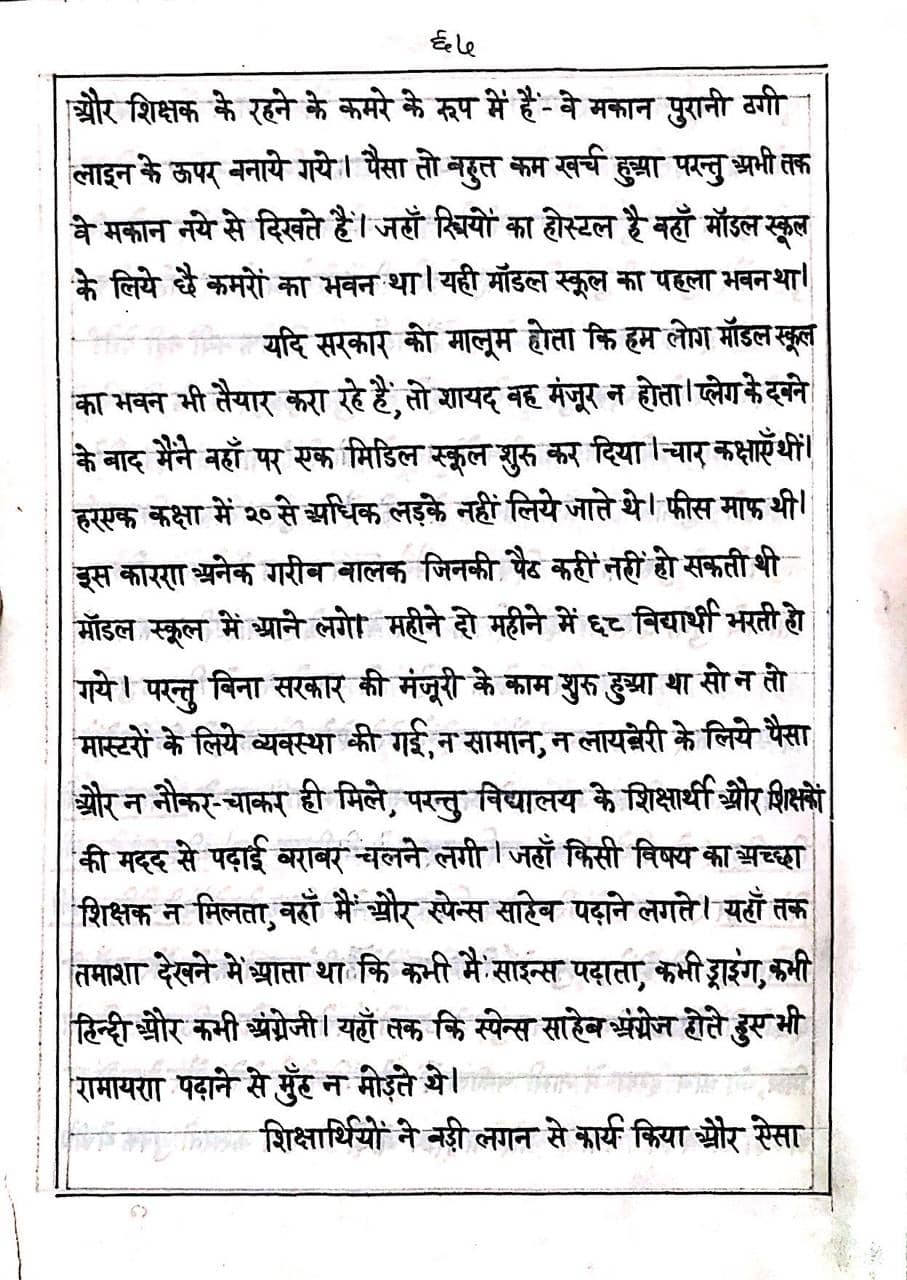 ६५
और शिक्षक के रहने के कमरे के रूप में हैं- वे मकान पुरानी ठगी
लाइन के ऊपर बनाये गये। पैसा तो बहुत कम खर्च हुआ परन्तु अभी तक
वे मकान नये से दिखते हैं। जहाँ स्त्रियों का होस्टल है वहाँ मॉडल स्कूल
के लिये छै कमरों का भवन था। यही मॉडल स्कूल का पहला भवन था।
यदि सरकार को मालूम होता कि हम लोग मॉडल स्कूल
का भवन भी तैयार करा रहे हैं, तो शायद वह मंजूर न होता। प्लेग के दबने
के बाद मैंने वहाँ पर एक मिडिल स्कूल शुरु कर दिया। चार कक्षाएँ थीं।
हरएक कक्षा में २० से अधिक लड़के नहीं लिये जाते थे। फीस माफ थी।
इस कारण अनेक गरीब बालक जिनकी पैठ कहीं नहीं हो सकती थी
मॉडल स्कूल में आने लगे। महीने दो महीने में ६८ विद्यार्थी भरती हो
गये। परन्तु बिना सरकार की मंजूरी के काम शुरु हुआ था सो न तो
मास्टरों के लिये व्यवस्था की गई, न सामान, न लायब्रेरी के लिये पैसा
और न नौकर-चाकर ही मिले, परन्तु विद्यालय के शिक्षार्थी और शिक्षकों
की मदद से पढ़ाई बराबर चलने लगी। जहाँ किसी विषय का अच्छा
शिक्षक न मिलता, वहाँ मैं और स्पेन्स साहेब पढ़ाने लगते। यहाँ तक
तमाशा देखने में आता था कि कभी मैं साइन्स पढ़ाता, कभी ड्राइंग, कभी
हिन्दी और कभी अंग्रेजी। यहाँ तक कि स्पेन्स साहेब अंग्रेज होते हुए भी
रामायण पढ़ाने से मुँह न मोड़ते थे।
शिक्षार्थियों ने बड़ी लगन से कार्य किया और ऐसा